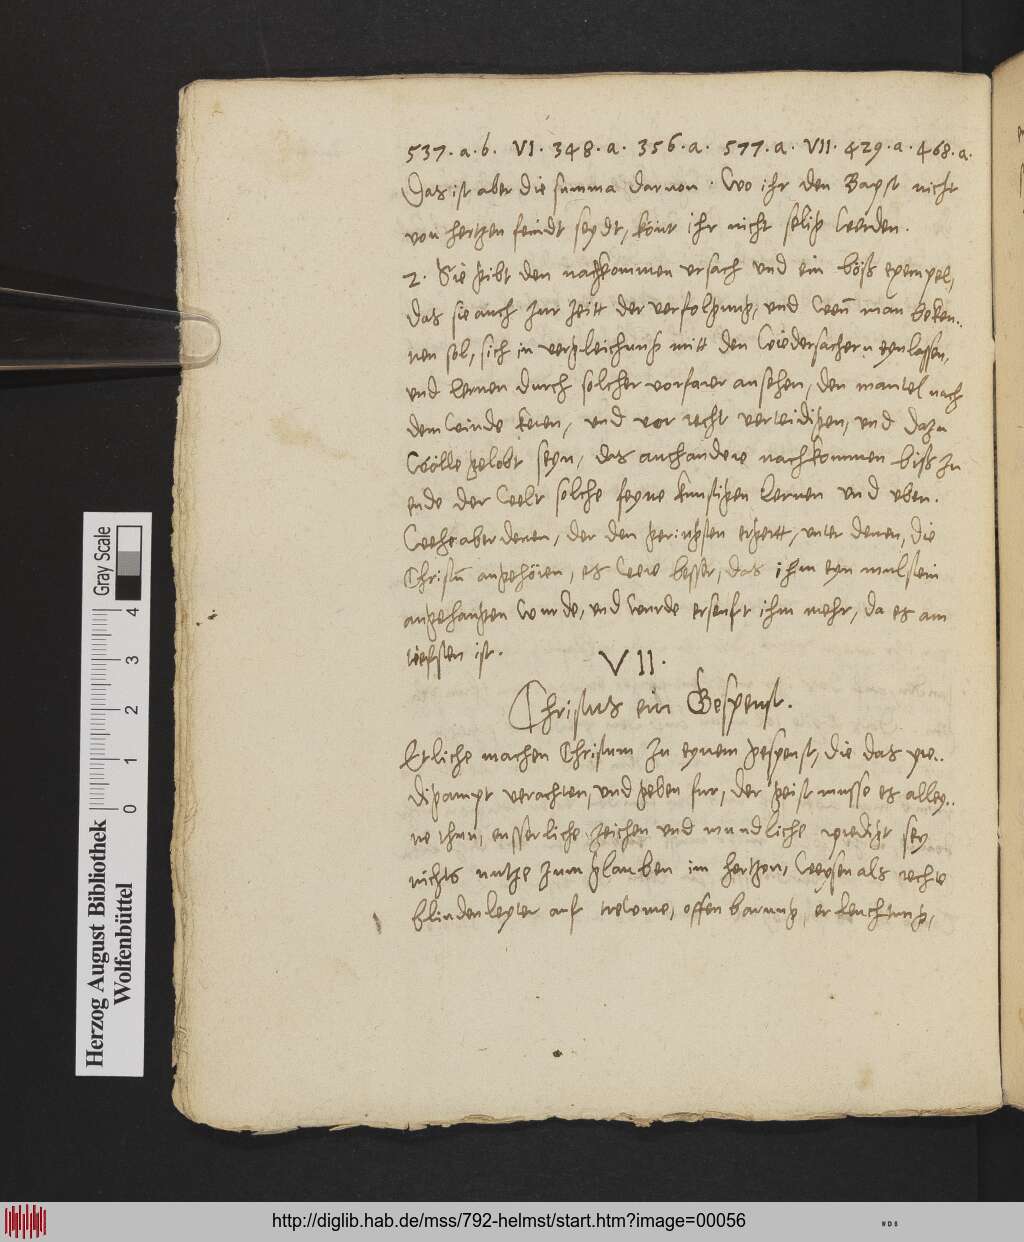 537. a. b. VI. 348. a. 356. a. 577. a. VII. 429. a. 468. a.
Das ist aber die summa daruon. Wo ihr den Bapst nicht
von hertzen feindt seydt, könt ihr nicht selig werden.
2. Sie gibt den nachkommen ursach und ein böß exempel,
das sie auch zur zeitt der verfolgung, und wen̄ man beken..
nen sol, sich in vergleichung mitt den wiedersachern eynlassen,
und lernen durch solcher vorfarer ansehen, den mantel nach
dem winde keren, und vor recht verteidigen, und dazu
wölle gelobt seyn, das auch andere nachkommen biß zu
ende der welt solche feyne kunstigen lernen und uben.
Wehe aber denen, der den geringsten ergertt, unter denen, die
Christū angehören, es were besser, das ihm eyn mulstein
angehangen wurde, und wurde erseuft ihm mehr, da es am
tiefsten ist.
VII.
Christus ein Gespenst.
Etliche machen Christum zu eynem gespenst, die das pre..
digampt verachten, und geben fur, der geist musse es alley..
ne thun, eusserliche zeichen und mundliche predigt sey
nichts nutze zum glauben im hertzen, weysen als rechte
blindenleyter auf trewme, offenbarung, erleuchtung,
Gray Scale
0 1 2 3 4
Herzog August Bibliothek
Wolfenbüttel
http://diglib.hab.de/mss/792-helmst/start.htm?image=00056